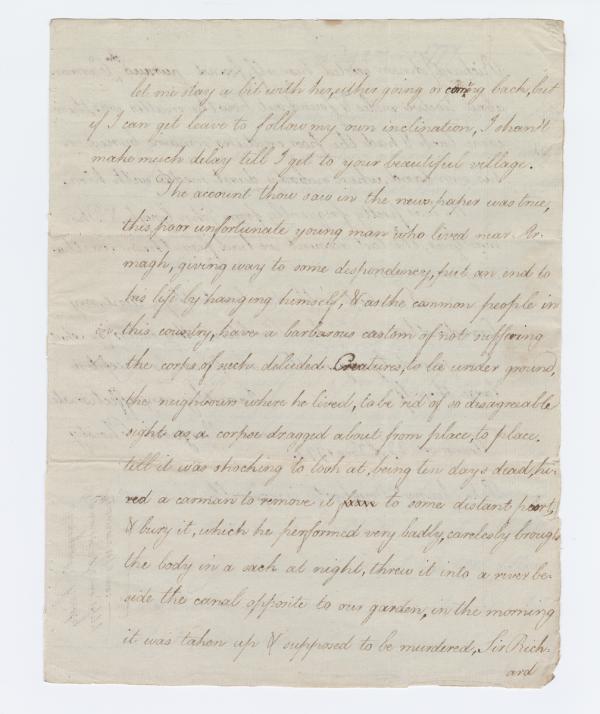 let me stay a bit with her, either going or coming back, but
if I can get leave to follow my own inclination, I shan't
make much delay till I get to your beautiful village.
The account thow saw in the news paper was true,
this poor unfortunate young man who lived near Ar-
magh, giving way to some despondency, put an end to
his life by hanging himself, & as the common people in
this country, have a barbarous custom of not suffering
the corps, of such deluded Creatures, to lie under ground,
the neighbours where he lived, to be rid of so disagreeable
sight as a corpse dragged about from place, to place.
till it was shocking to look at, being ten days dead, hi-
red a carman to remove it to some distant part,
& bury it, which he performed very badly, carelesly brought
the body in a sack at night, threw it into a river be-
side the canal opposite to our garden, in the morning
it was taken up & supposed to be murdered, Sir Rich-
ard